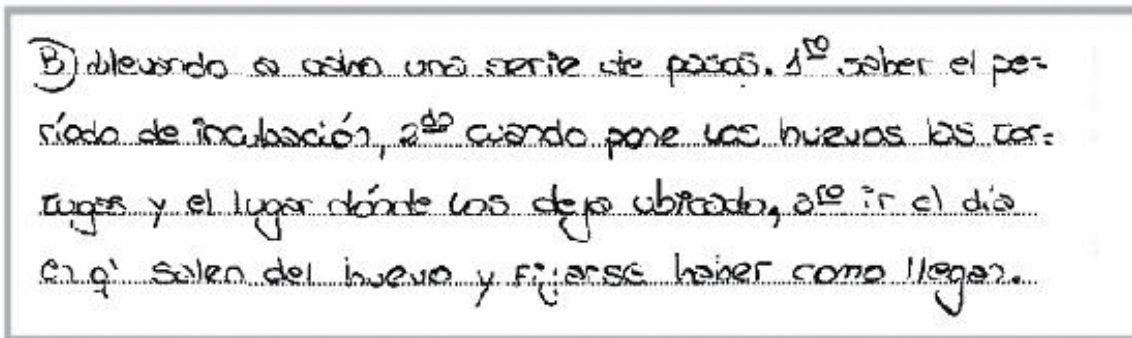 B) llevando a cabo una serie de pasos. 1ro saber el pe=
ríodo de incubación, 2do cuando pone los huevos las tor=
tugas y el lugar dónde los deja ubicado, 3ro ir el día
en q' salen del huevo y fijarse haber como llegan.